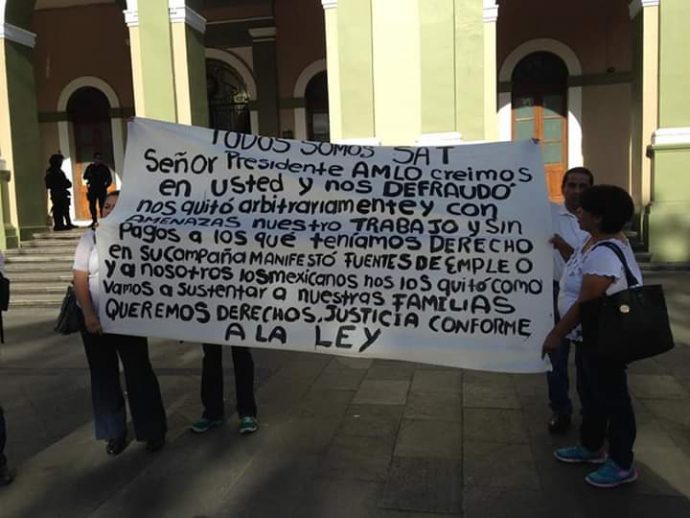 TODOS SOMOS SAT
Señor Presidente AMLO creimos
en usted y nos DEFRAUDÓ
nos quitó arbitrariamentey con
AMENAZAS nuestro TRABAJO y SIN
PAGOS A LOS QUE TENÍAMOS DERECHO
EN SU COMPAÑA MANIFESTÓ FUENTES DE EMPLEO
Y A NOSOTROS LOS MEXICANOS NOS LOS QUITÓ COMO
VAMOS A SUSTENTAR A NUESTRAS FAMILIAS
QUEREMOS DERECHOS, JUSTICIA CONFORME
A LA LEY